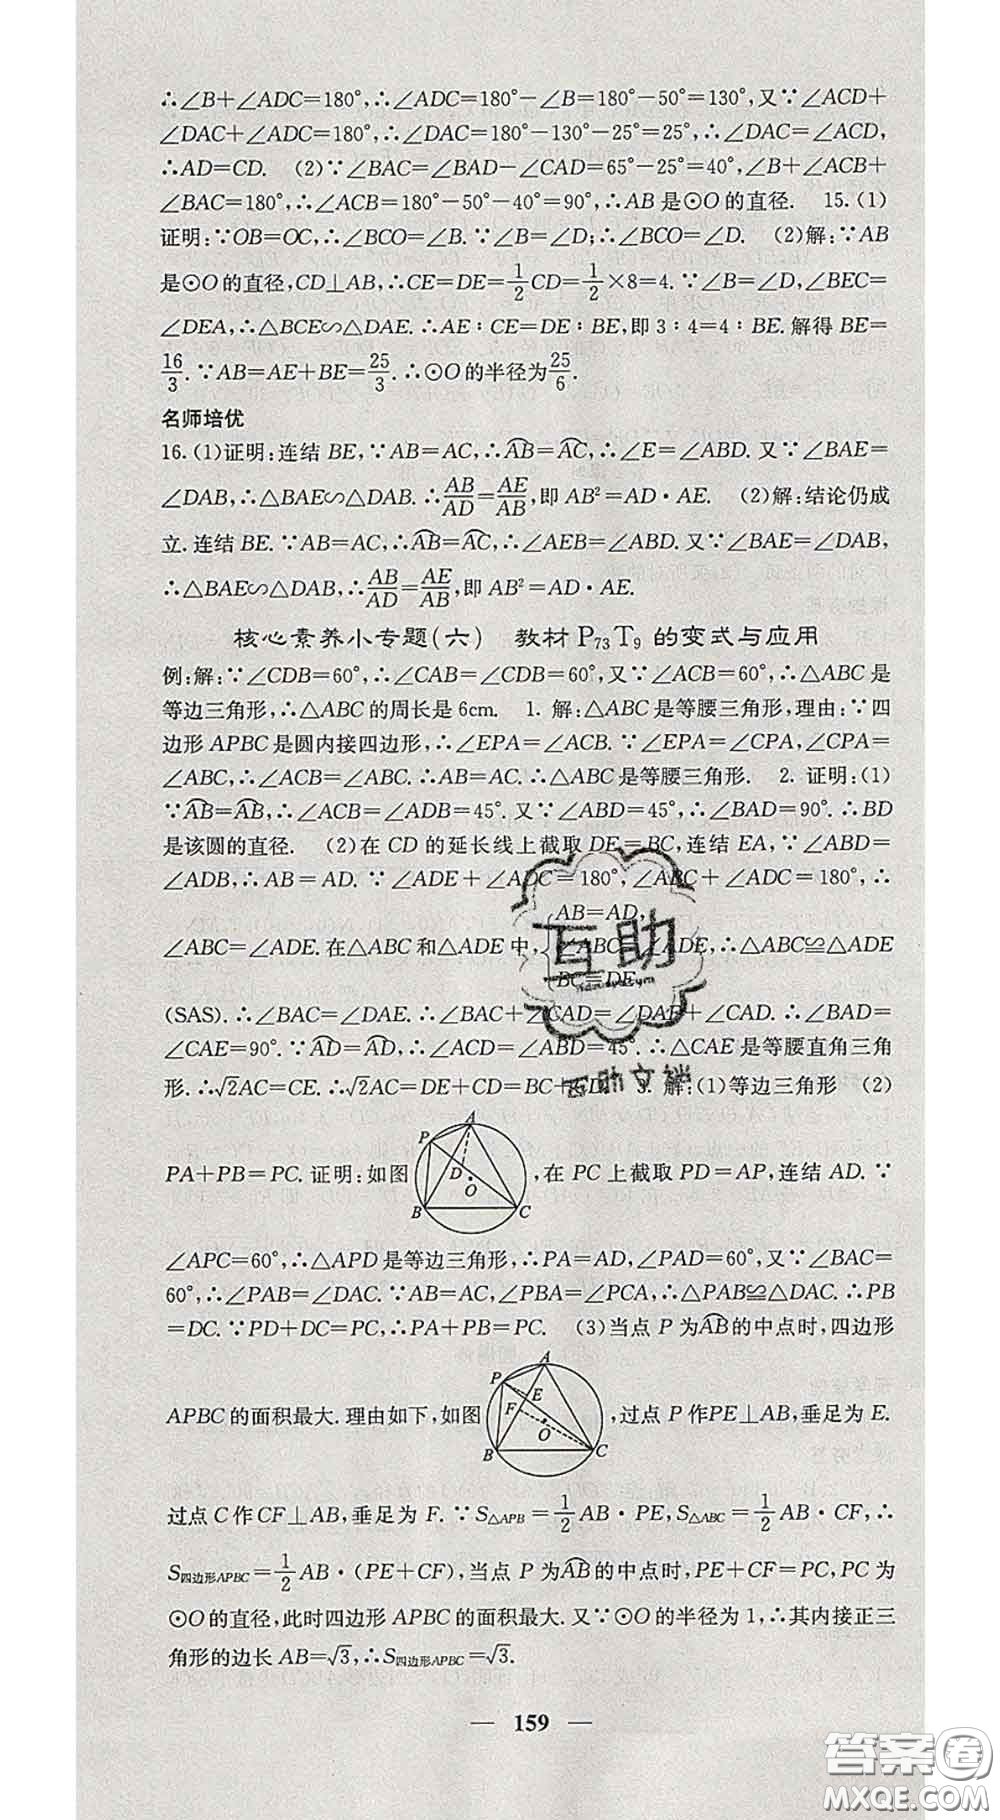 ∴∠B+∠ADC=180°,∴∠ADC=180°-∠B=180°-50°=130°,又∵∠ACD+
∠DAC+∠ADC=180°,∴∠DAC=180°-130°-25°=25°,∴∠DAC=∠ACD,
∴AD=CD. (2)∵∠BAC=∠BAD-∠CAD=65°-25°=40°,∠B+∠ACB+
∠BAC=180°,∴∠ACB=180°-50°-40°=90°,∴AB是⊙O的直径. 15.(1)
证明:∵OB=OC,∴∠BCO=∠B.∵∠B=∠D;∴∠BCO=∠D. (2)解:∵AB
是⊙O的直径,CD⊥AB,∴CE=DE=1/2CD=1/2×8=4.∵∠B=∠D,∠BEC=
∠DEA,∴△BCE∽△DAE.∴AE:CE=DE:BE,即3:4=4:BE.解得BE=
16/3.∵AB=AE+BE=25/3.∴⊙O的半径为25/6.
名师培优
16.(1)证明:连结BE,∵AB=AC,∴⌒AB=⌒AC,∴∠E=∠ABD.又∵∠BAE=
∠DAB,∴△BAE∽△DAB.∴AB/AD=AE/AB,即AB²=AD·AE. (2)解:结论仍成
立.连结BE.∵AB=AC,∴⌒AB=⌒AC,∴∠AEB=∠ABD.又∵∠BAE=∠DAB,
∴△BAE∽△DAB,∴AB/AD=AE/AB,即AB²=AD·AE.
核心素养小专题(六) 教材P₇₃T₉的变式与应用
例:解:∵∠CDB=60°,∴∠CAB=∠CDB=60°,又∵∠ABC=60°,∴△ABC是
等边三角形,∴△ABC的周长是6cm. 1. 解:△ABC是等腰三角形,理由:∵四
边形APBC是圆内接四边形,∴∠EPA=∠ACB.∵∠EPA=∠CPA,∠CPA=
∠ABC,∴∠ACB=∠ABC.∴AB=AC.∴△ABC是等腰三角形. 2. 证明:(1)
∵⌒AB=⌒AB,∴∠ACB=∠ADB=45°.又∵∠ABD=45°,∴∠BAD=90°.∴BD
是该圆的直径. (2)在CD的延长线上截取DE=BC,连结EA,∵∠ABD=
∠ADB,∴AB=AD.∵∠ADE+∠ADC=180°,∠ABC+∠ADC=180°,∴
AB=AD,
∠ABC=∠ADE.在△ABC和△ADE中,{∠ABC=∠ADE,∴△ABC≌△ADE
BC=DE,
(SAS).∴∠BAC=∠DAE.∴∠BAC+∠CAD=∠DAE+∠CAD.∴∠BAD=
∠CAE=90°.∵⌒AD=⌒AD,∴∠ACD=∠ABD=45°.∴△CAE是等腰直角三角
形.∴√2AC=CE.∴√2AC=DE+CD=BC+CD. 3. 解:(1)等边三角形 (2)
PA+PB=PC.证明:如图 A P D O B C ,在PC上截取PD=AP,连结AD.∵
∠APC=60°,∴△APD是等边三角形,∴PA=AD,∠PAD=60°,又∵∠BAC=
60°,∴∠PAB=∠DAC.∵AB=AC,∠PBA=∠PCA,∴△PAB≌△DAC.∴PB
=DC.∵PD+DC=PC,∴PA+PB=PC. (3)当点P为⌒AB的中点时,四边形
APBC的面积最大.理由如下,如图 A P E F O B C ,过点P作PE⊥AB,垂足为E.
过点C作CF⊥AB,垂足为F.∵S△APB=1/2AB·PE,S△ABC=1/2AB·CF,∴
S四边形APBC=1/2AB·(PE+CF),当点P为⌒AB的中点时,PE+CF=PC,PC为
⊙O的直径,此时四边形APBC的面积最大.又∵⊙O的半径为1,∴其内接正三
角形的边长AB=√3,∴S四边形APBC=√3.
— 159 —
互助
答案圈
MXQE.COM